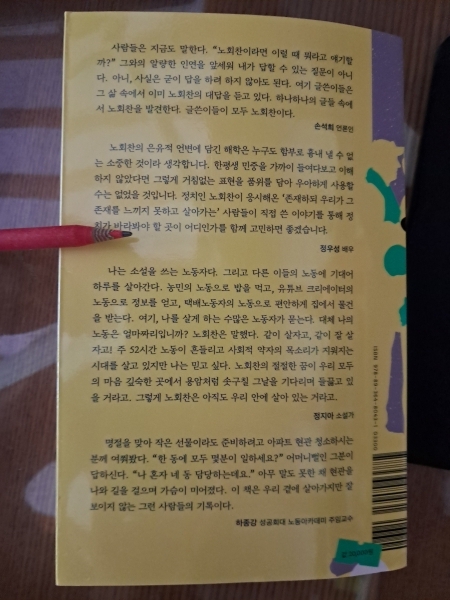 사람들은 지금도 말한다. "노회찬이라면 이럴 때 뭐라고 얘기할
까?" 그와의 알량한 인연을 앞세워 내가 답할 수 있는 질문이 아니
다. 아니, 사실은 굳이 답을 하려 하지 않아도 된다. 여기 글쓴이들은
그 삶 속에서 이미 노회찬의 대답을 듣고 있다. 하나하나의 글들 속에
서 노회찬을 발견한다. 글쓴이들이 모두 노회찬이다.
손석희 언론인
노회찬의 은유적 언변에 담긴 해학은 누구도 함부로 흉내 낼 수 없
는 소중한 것이라 생각합니다. 한평생 민중을 가까이 들여다보고 이해
하지 않았다면 그렇게 거침없는 표현을 품위를 담아 우아하게 사용할
수는 없었을 것입니다. 정치인 노회찬이 응시해온 '존재하되 우리가 그
존재를 느끼지 못하고 살아가는' 사람들이 직접 쓴 이야기를 통해 정
치가 바라봐야 할 곳이 어디인가를 함께 고민하면 좋겠습니다.
정우성 배우
나는 소설을 쓰는 노동자다. 그리고 다른 이들의 노동에 기대어
하루를 살아간다. 농민의 노동으로 밥을 먹고, 유튜브 크리에이터의
노동으로 정보를 얻고, 택배노동자의 노동으로 편안하게 집에서 물건
을 받는다. 여기, 나를 살게 하는 수많은 노동자가 묻는다. 대체 나의
노동은 얼마짜리입니까? 노회찬은 말했다. 같이 살자고, 같이 잘 살
자고! 주 52시간 노동이 흔들리고 사회적 약자의 목소리가 지워지는
시대를 살고 있지만 나는 믿고 싶다. 노회찬의 절절한 꿈이 우리 모두
의 마음 깊숙한 곳에서 용암처럼 솟구칠 그날을 기다리며 들끓고 있
을 거라고. 그렇게 노회찬은 아직도 우리 안에 살아 있는 거라고.
정지아 소설가
명절을 맞아 작은 선물이라도 준비하려고 아파트 현관 청소하시는
분께 여쭤봤다. "한 동에 모두 몇분이 일하세요?" 어머니뻘인 그분이
답하신다. "나 혼자 네 동 담당하는데요." 아무 말도 못한 채 현관을
나와 길을 걸으며 가슴이 미어졌다. 이 책은 우리 곁에 살아가지만 잘
보이지 않는 그런 사람들의 기록이다.
하종강 성공회대 노동아카데미 주임교수